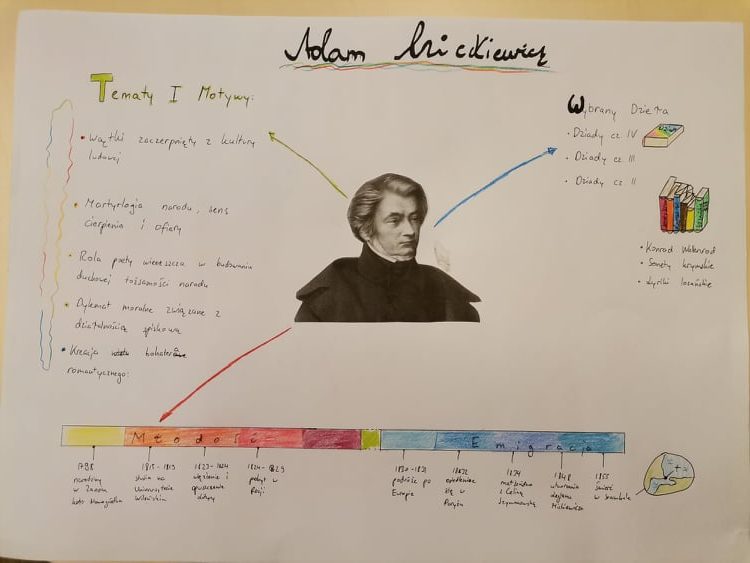 Adam Mickiewicz
Tematy I Motywy:
• Wątki zaczerpnięty z kultury
ludowej
• Martyrlogia narodu, sens
cierpienia i ofiary
• Rola poety wieszcza w budowaniu
duchowej tożsamości narodu
• Dylemat moralne związane z
działalnością spiskową
• Kreacja bohaterów
romantycznego:
Wybrany Dzieła
• Dziady cz. IV
• Dziady cz. III
• Dziady cz. II
• Konrad Wallenrod
• Sonety krymskie
• Lyriki lozańskie
Młodość
Emigracja
1798
narodziny
w Zaosiu
koło Nowogródka
1815-1819
studia na
Uniwersytecie
Wileńskim
1823-1824
więzienie i
opuszczenie
1824-1829
pobyt w
Rosji
1830-1831
podróże po
Europie
1832
osiedlenie
się w
Paryżu
1834
małżeństwo
z Celiną
Szymanowską
1848
utworzenie
legionu
Mickiewicza
1855
Śmierć
w Stambule